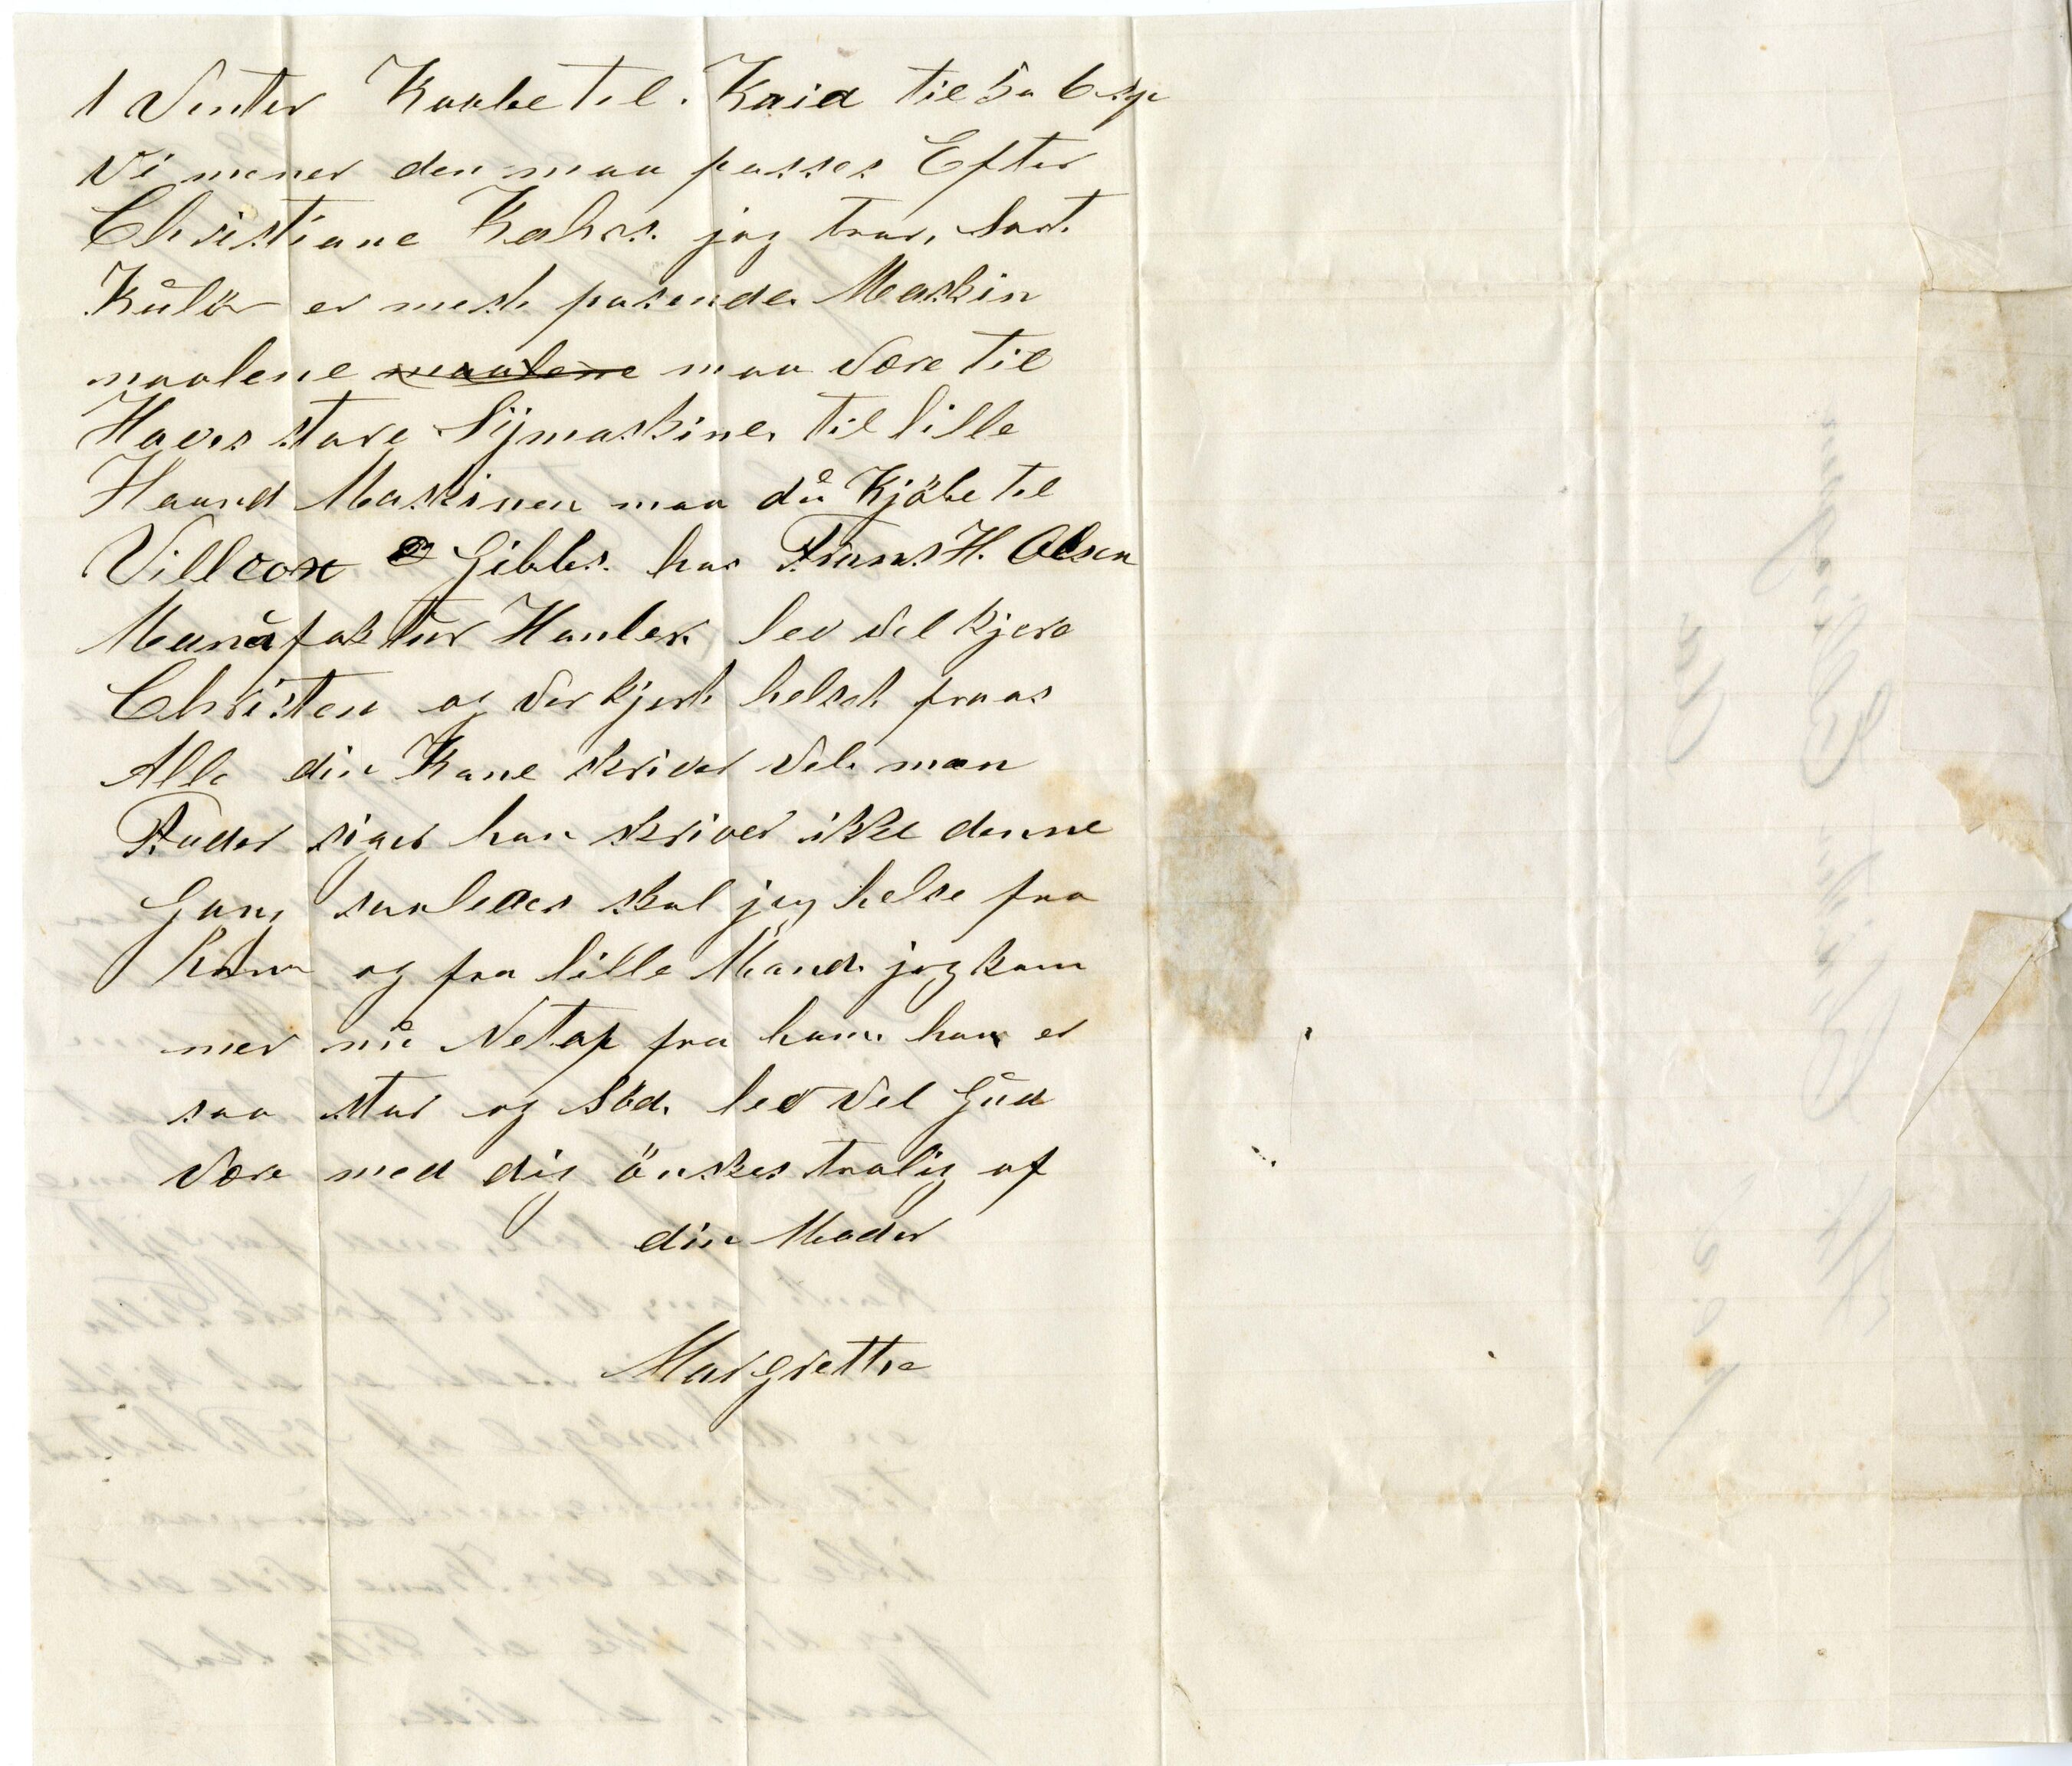 1 Vinter Kaabe til. Kaia til 5 a 6 sp
Vi mener den maa passes Efter
Christiane Kahrs. jeg tror, Sort.
Kulör er mest pasende. Maskin
naalene maa Være til
Hoves store Symaskine. til lille
Haand Maskinen maa du Kjöbe til
Villcox & Gibbs. hos Frans H. Olsen
Manufaktur Hanler. lev Vel kjere
Christen og Ver kjert helset fra os
Alle din Kone skriver Vel. men
Fader siger han skriver ikke denne
Gang saaledes skal jeg helse fra
ham og fra lille Mand. jeg kom
mer nu Netop fra ham. han er
saa stor og Söd. lev Vel Gud
Være med dig önskes trolig af
din Moder
Margrethe